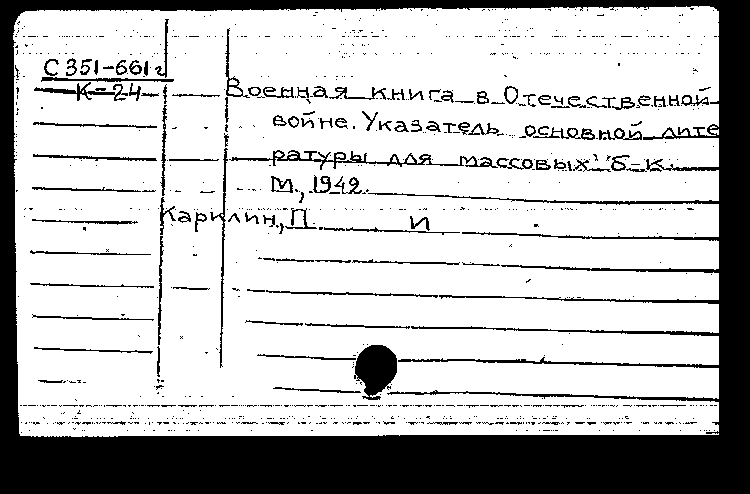 С 351-661г
К-24
Военная книга в Отечественной
войне. Указатель основной лите
ратуры для массовых б-к.
М., 1942.
Карклин, П. И